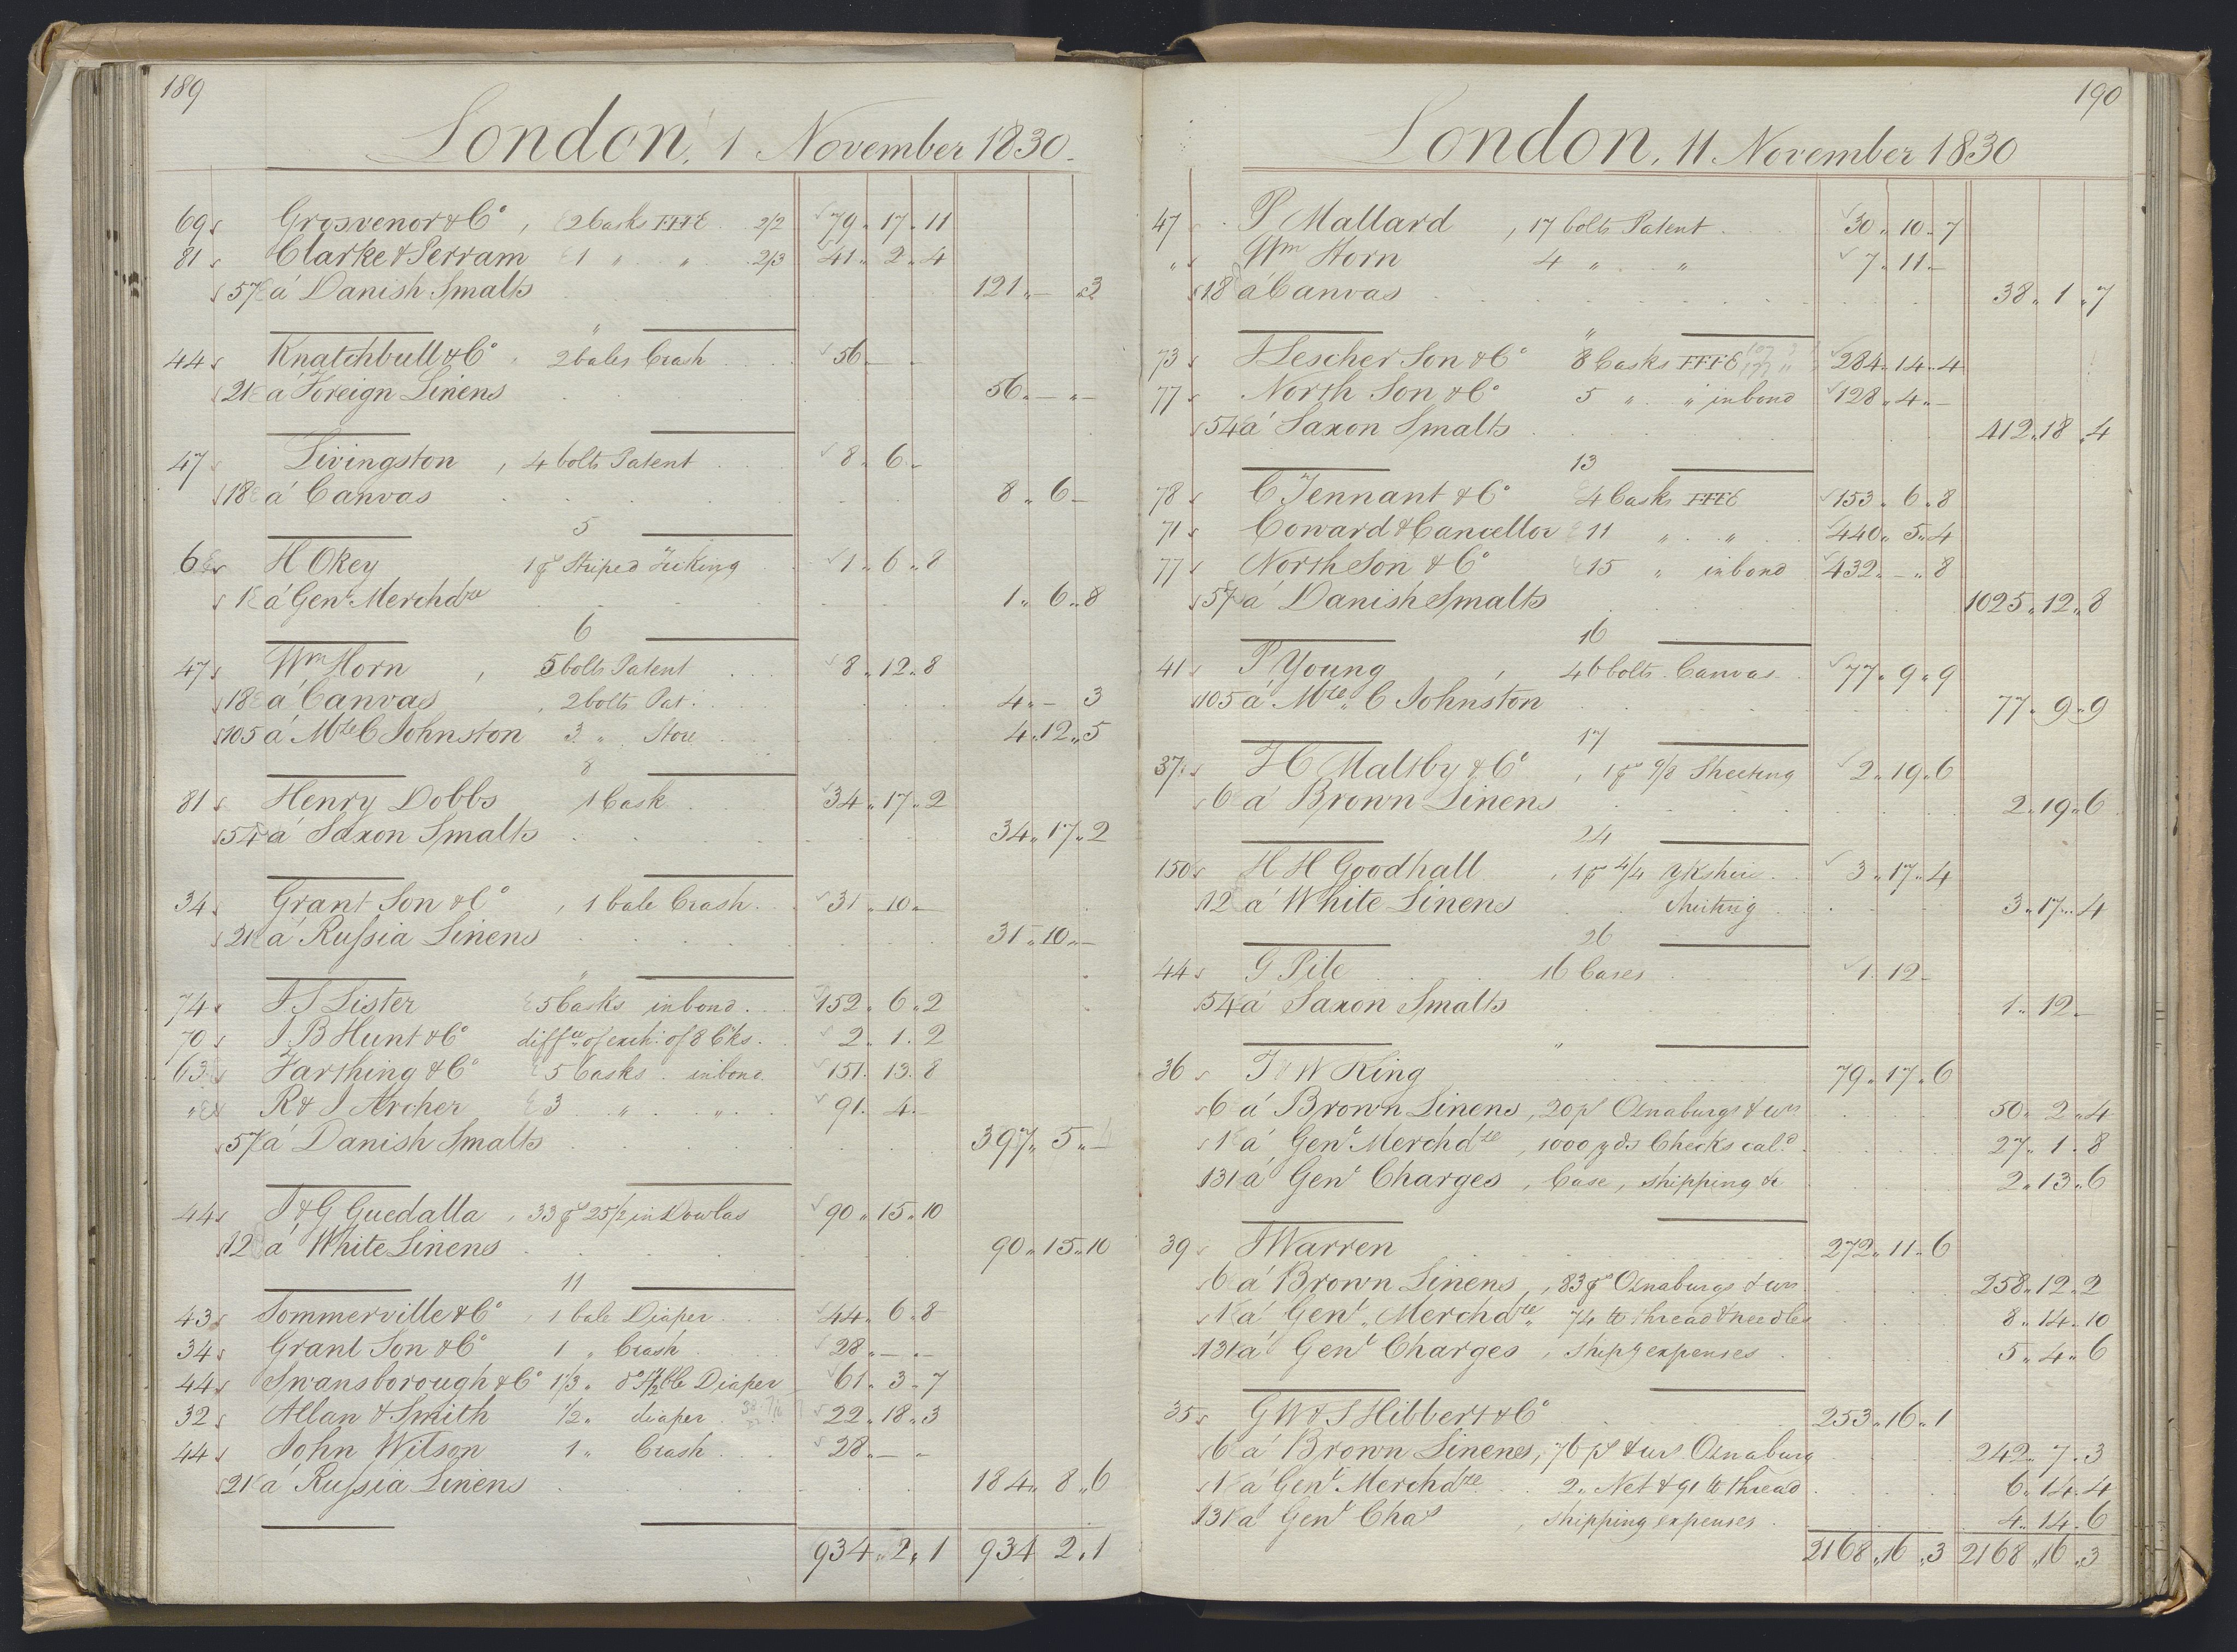 189
London, 1 November 1830.
69 Grosvenor & Co, 2 Casks FFFE 2/2 79 " 17 " 11
81 Clarke & Perram 1 " " 2/3 41 " 2 " 4
57 á Danish Smalts 121 " — " 3
"
44 Knatchbull & Co 2 bales Crash 56 - -
21 á Foreign Linens 56 " — " —
47 Livingston, 4 bolts Patent 8 " 6 -
18 á Canvas 8 " 6 —
5
6 H Okey 1 p Striped Ticking 1 " 6 " 8
1 á Genl Merchdze 1 " 6 " 8
6
47 Wm Horn, 5 bolts Patent 8 " 12 " 8
18 á Canvas, 2 bolts Pat: 4 " - 3
105 á Mtle C Johnston 3 " Store 4 " 12 " 5
8
81 Henry Dobbs 1 Cask 34 " 17 " 2
54 á Saxon Smalts 34 " 17 " 2
34 Grant Son & Co, 1 bale Crash 31 " 10 " —
21 á Russia Linens 31 " 10 " —
"
74 J S Lister 5 Casks inbond 152 " 6 " 2
70 J B Hunt & Co diffce of exch: of 8 Cks. 2 " 1 " 2
63 Farthing & Co 5 Casks inbond 151 " 13 " 8
" R & J Archer 3 " " 91 " 4 -
57 á Danish Smalts 397 " 5 " —
44 J & G Guedalla, 33 ps 25 1/2 in Dowlas 90 " 15 " 10
12 á White Linens 90 " 15 " 10
11
43 Sommerville & Co, 1 bale Diaper 44 " 6 " 8
34 Grant Son & Co 1 " Crash 28 " — " —
44 Swansborough & Co 1 1/3 " do 1/2 ble Diaper 61 " 3 " 7
32 Allan & Smith 1/2 " diaper 22 " 18 " 3
44 John Wilson 1 " Crash 28 " — "
21 á Russia Linens 184 " 8 " 6
934 " 2 " 1 934 2 " 1
190
London, 11 November 1830
47 P Mallard, 17 bolts Patent 30 " 10 " 7
" Wm Horn 4 " " 7 " 11 —
18 á Canvas 38 " 1 " 7
"
73 J Lescher Son & Co 8 Casks FFFE 284 " 14 " 4
77 North Son & Co 5 " " inbond 128 " 4 " —
54 á Saxon Smalts 412 " 18 " 4
13
78 C Tennant & Co 4 Casks FFFE 153 " 6 " 8
71 Coward & Cancellor 11 " " 440 " 5 " 4
77 North Son & Co 15 " inbond 432 " — " 8
57 á Danish Smalts 1025 " 12 " 8
16
41 P Young, 46 bolts Canvas 77 " 9 " 9
105 á Mtle C Johnston 77 " 9 " 9
17
37 H C Maltby & Co, 1 ps 9/8 Sheeting 2 " 19 " 6
6 á Brown Linens 2 " 19 " 6
24
150 H H Goodhall, 1 ps 4/4 Ykshire 3 " 17 " 4
12 á White Linens Sheeting 3 " 17 " 4
26
44 G Pile 16 Cases 1 " 12 -
54 á Saxon Smalts 1 " 12 -
"
36 J & W King 79 " 17 " 6
6 á Brown Linens, 20 ps Osnaburgs & wrs 50 " 2 " 4
1 á Genl Merchdze, 1000 yds Checks cald 27 " 1 " 8
131 á Genl Charges, Case, shipping & 2 " 13 " 6
39 J Warren 272 " 11 " 6
6 á Brown Linens, 83 ps Osnaburgs & wrs 258 " 12 " 2
1 á Genl Merchdze 74 lb thread & needles 8 " 14 " 10
131 á Genl Charges, Shipg expenses 5 " 4 " 6
35 G W & S Hibbert & Co 253 " 16 " 1
6 á Brown Linens, 76 ps & wrs Osnaburg 242 " 7 " 3
1 á Genl Merchdze 2 " Net & 91 lb thread 6 " 14 " 4
131 á Genl Chas, Shipping expenses 4 " 14 " 6
2168 " 16 " 3 2168 " 16 " 3